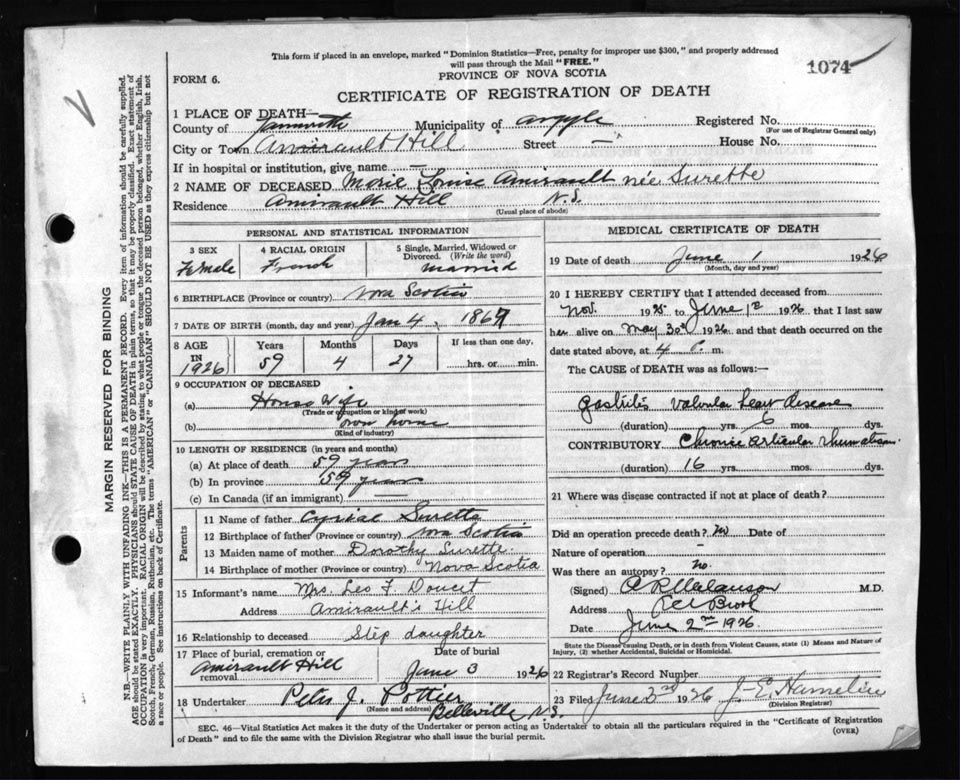 This form if placed in an envelope, marked "Dominion Statistics—Free, penalty for improper use $300," and properly addressed
will pass through the Mail "FREE."
1074
FORM 6.
PROVINCE OF NOVA SCOTIA
CERTIFICATE OF REGISTRATION OF DEATH
1 PLACE OF DEATH—
County of Yarmouth Municipality of Argyle Registered No.
(For use of Registrar General only)
City or Town Amirault Hill Street — House No.
If in hospital or institution, give name —
2 NAME OF DECEASED Marie Louise Amirault née Surette
Residence Amirault Hill N.S.
(Usual place of abode)
PERSONAL AND STATISTICAL INFORMATION
3 SEX 4 RACIAL ORIGIN 5 Single, Married, Widowed or
Divorced. (Write the word)
Female French married
6 BIRTHPLACE (Province or country) Nova Scotia
7 DATE OF BIRTH (month, day and year) Jan 4, 1867
8 AGE Years Months Days If less than one day,
IN 1926 59 4 27 hrs. or min.
9 OCCUPATION OF DECEASED
(a) House Wife
(Trade or occupation or kind of work)
(b) own home
(Kind of industry)
10 LENGTH OF RESIDENCE (in years and months)
(a) At place of death 59 years
(b) In province 59 years
(c) In Canada (if an immigrant) —
Parents
11 Name of father Cyriac Surette
12 Birthplace of father (Province or country) Nova Scotia
13 Maiden name of mother Dorothy Surette
14 Birthplace of mother (Province or country) Nova Scotia
15 Informant's name Mrs. Leo F. Doucet
Address Amirault's Hill
16 Relationship to deceased Step daughter
17 Place of burial, cremation or Date of burial
removal Amirault Hill June 3 1926
18 Undertaker Peter J. Pottier
(Name and address) Belleville N.S.
MEDICAL CERTIFICATE OF DEATH
19 Date of death June 1 1926
(Month, day and year)
20 I HEREBY CERTIFY that I attended deceased from
Nov. 1925 to June 1st 1926 that I last saw
her alive on May 30th 1926 and that death occurred on the
date stated above, at 4 P. m.
The CAUSE of DEATH was as follows:—
gastritis valvular heart disease
(duration) yrs. 6 mos. dys.
CONTRIBUTORY Chronic articular rhumatism
(duration) 16 yrs. mos. dys.
21 Where was disease contracted if not at place of death?
Did an operation precede death? No Date of
Nature of operation –
Was there an autopsy? no.
(Signed) M.D.
Address Eel Brook
Date June 2nd 1926.
State the Disease causing Death, or in death from Violent Causes, state (1) Means and Nature of
Injury, (2) whether Accidental, Suicidal or Homicidal.
22 Registrar's Record Number
23 Filed June 3rd 1926 J. E. Hamelin
(Division Registrar)
SEC. 46—Vital Statistics Act makes it the duty of the Undertaker or person acting as Undertaker to obtain all the particulars required in the "Certificate of Registration
of Death" and to file the same with the Division Registrar who shall issue the burial permit.
(OVER)
MARGIN RESERVED FOR BINDING
N.B.—WRITE PLAINLY WITH UNFADING INK—THIS IS A PERMANENT RECORD. Every item of information should be carefully supplied.
AGE should be stated EXACTLY. PHYSICIANS should STATE CAUSE OF DEATH in plain terms, so that it may be properly classified. Exact statement of
OCCUPATION is very important. RACIAL ORIGIN will be described by stating to what people or tongue the deceased person belonged, whether English, Irish,
Scotch, French, German, Russian, Ruthenian, etc. The terms "AMERICAN" or "CANADIAN" SHOULD NOT BE USED as they express citizenship but not
a race or people. See instructions on back of Certificate.